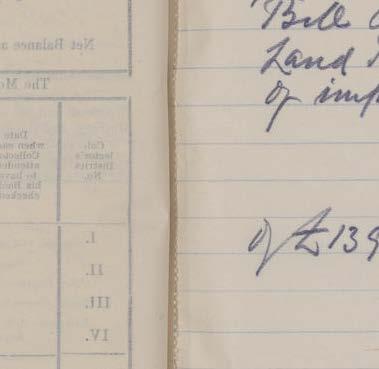 Net Balance a
The Mo
Date
when eac
Collector
attended
to have
his Book
checked
Col-
lector's
District
No.
I.
II.
III.
IV.
Bill
Land
of imp
of £139